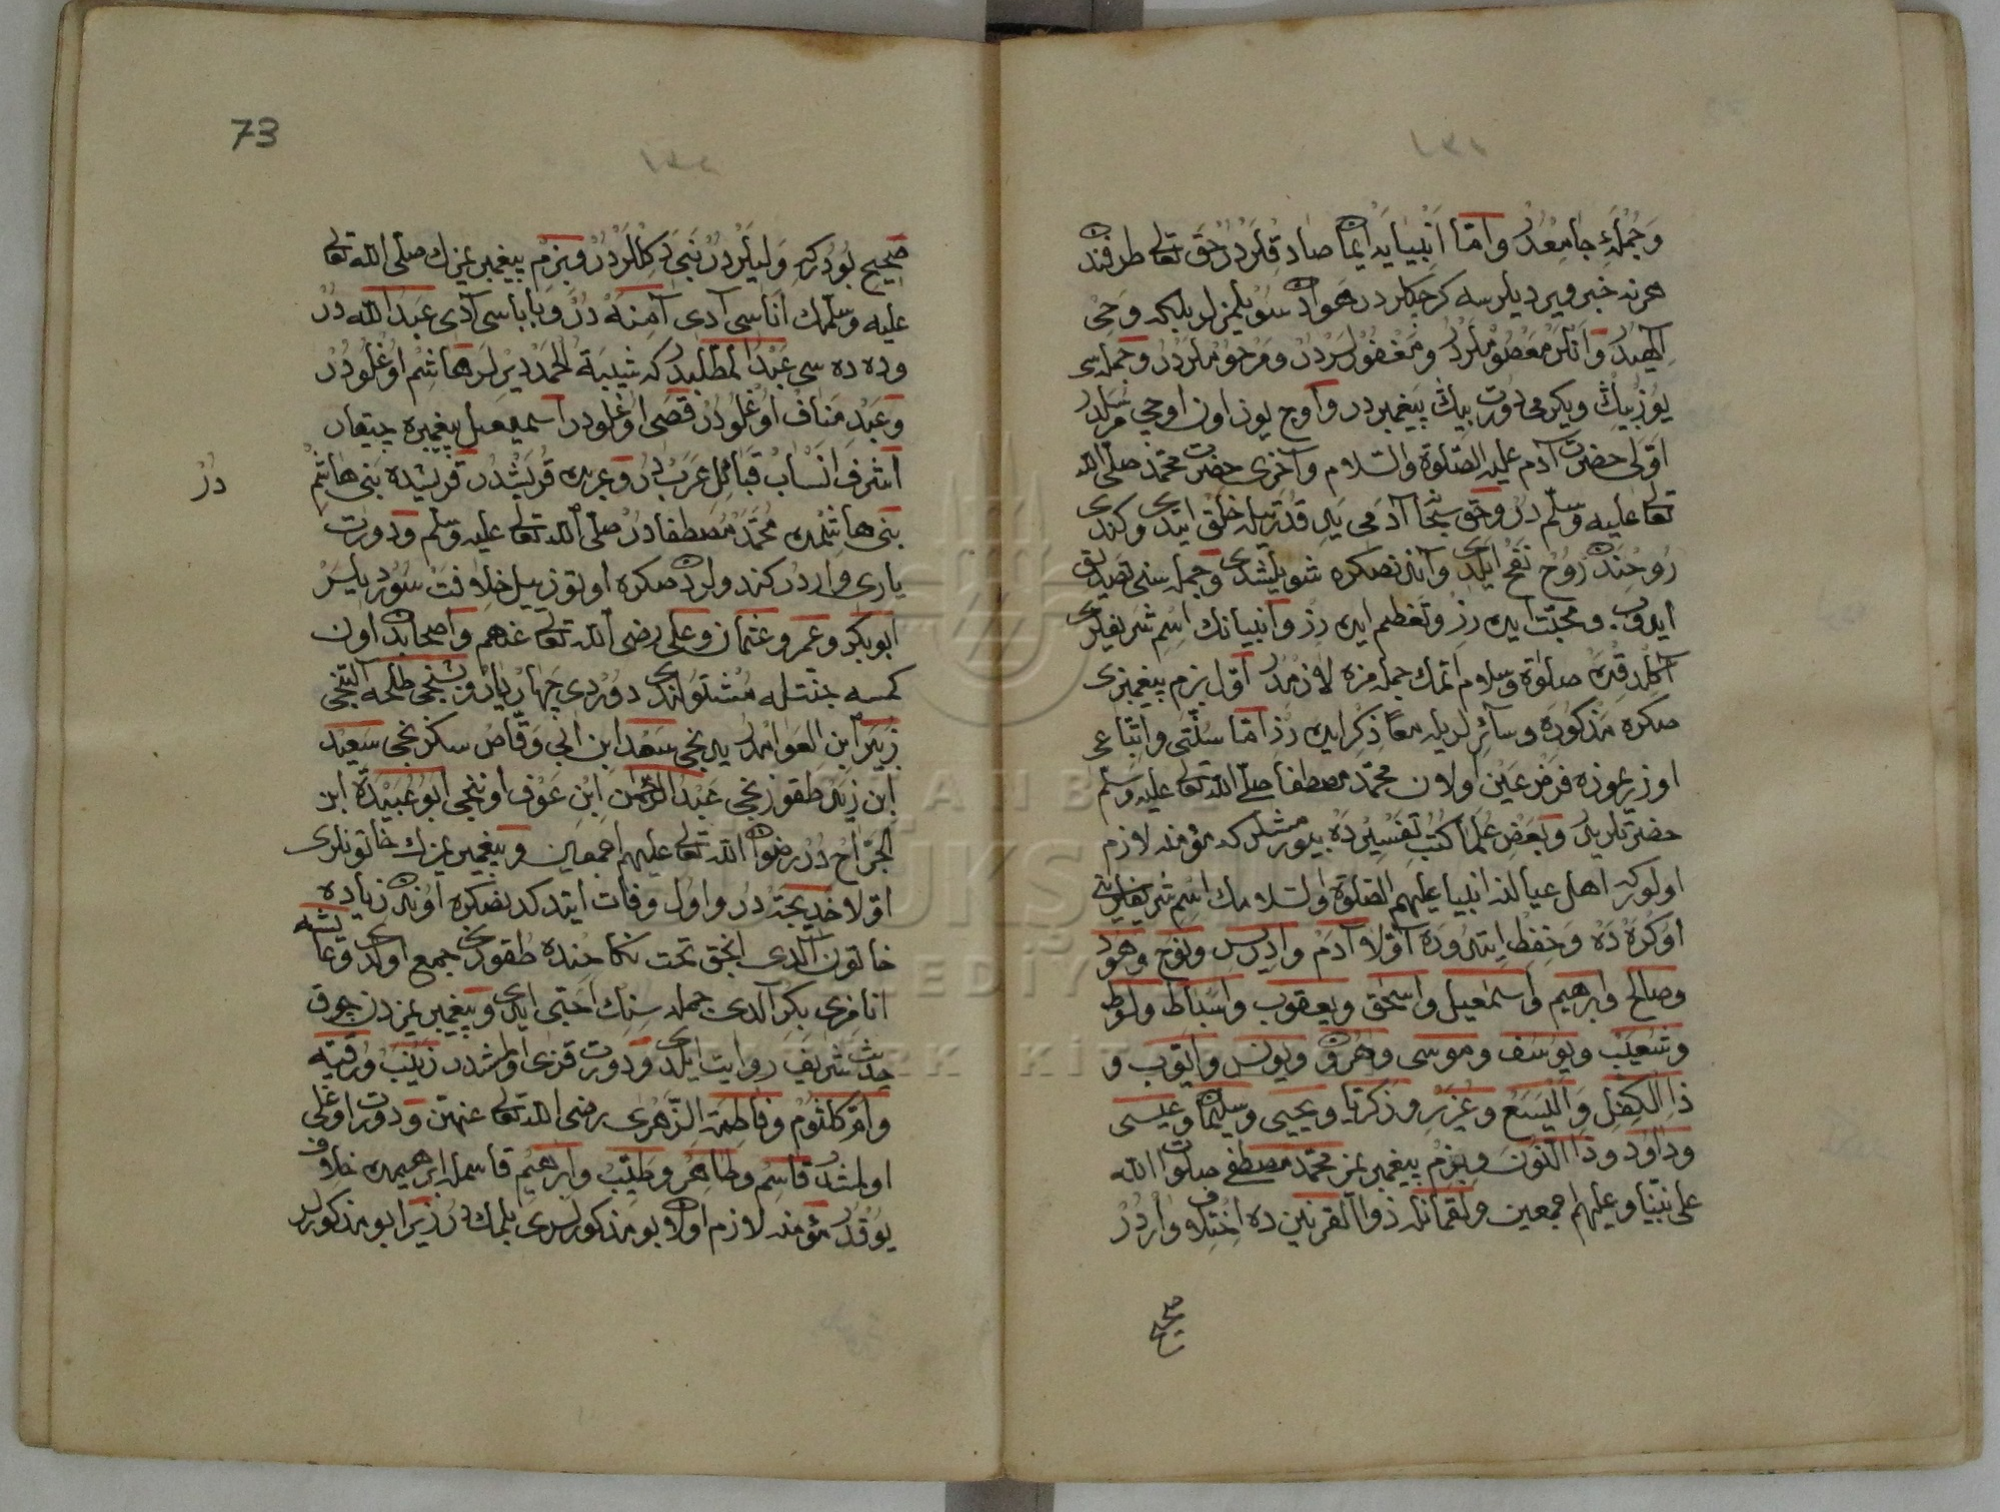 وَجُمْلَهٔ جامِعْدُرْ وامّا اَنْبِيايه ايمان صادقلردر حق تعالى طرفندن
هر نه خبر ويرديلرسه كرچكلردر هوادن سويلمزلر بلكه وحئ
الهيدر وانلر معصوملردر ومغفورلردر ومرحوملردر وجمله سى
يوز بيك ويكرمى دورت بيك پيغمبردر واوچ يوز اون اوچى مرسلدر
اوّلى حضرت آدم عليه الصّلوة والسّلام وآخرى حضرت محمّد صلّى الله
تعالى عليه وسلّم در وحق سبحانه آدمى يد قدرتيله خلق ايتدى وكندى
روحندن روح نفح ايلدى واندنصكره سويلشدى وجمله سنى تصديق
ايدوب ومحبّت ايدرز وتعظيم ايدرز وانبيانك اسم شريفلرى
آكلدقده صلوة وسلام اتمك جمله مزه لازمدر اوّل بزم پيغمبرمزى
صكره مذكوره وسائرلريله معاً ذكر ايدرز امّا سنّتى واتّباعى
اوزريموزه فرض عين اولان محمّد مصطفا صلى الله تعالى عليه وسلّم
حضرتلريدر وبعض علما كتب تفسيرده بيورمشلر كه مؤمنه لازم
اولور كه اهل عيالنه انبيا عليهم الصّلوة والسّلامك اسم شريفلرينى
اوكرده وحفظ ايتدروده اوّلا آدم وادريس ونوح وهود
وصالح وابرهيم واسمعيل واسحق ويعقوب واسباط ولوط
وشعيب ويوسف وموسى وهرون ويونس وايّوب و
ذا الكفل واليسع وعزير وزكريّا ويحيى وسليمان وعيسى
وداود وذا النّون وبزم پيغمبرمز محمّد مصطفى صلوات الله
على نبيّنا وعليهم اجمعين ولقمانله ذوا القرنين ده اختلاف واردر
صحيح
73
صحيح بودر كه وليلردر نبى دكللردر وبزم پيغمبريمزك صلّى الله تعالى
عليه وسلّمك اناسى آدى آمنه در وباباسى آدى عبد الله در
وده ده سى عبد المطّلبدر كه شيبة الحمد ديرلر هاشم اوغلودر
وعبد مناف اوغلودر قصى اوغلودر اسمعيل پيغمبره چيقار
اشرف انساب قبائل عربدر وعربده قريشدر قريشده بنى هاشم
در
بنى هاشمده محمّد مصطفادر صلّى الله تعالى عليه وسلّم ودورت
يارى واردر كندولردن صكره اوتوز ييل خلافت سورديلر
ابو بكر وعمر وعثمان وعلى رضى الله تعالى عنهم واصحابدن اون
كمسه جنتله مشتولندى دوردى چهار يار وبشنجى طلحه التنجى
زبير ابن العوامدر يدنجى سعد ابن ابى وقّاص سكزنجى سعيد
ابن زيد طقوزنجى عبد الرّحمن ابن عوف اوننجى ابو عبيدة ابن
الجرّاح در رضوان الله تعالى عليهم اجمعين وپيغمبريمزك خاتونلرى
اوّلا خديجه در واول وفات ايتدكدنصكره اوندن زياده
خاتون آلدى انجق تحت نكاحنده طقوزى جمع اولدى وعايشه
انا فزى بكر آلدى جمله سنك احبّى ايدى وپيغمبريمزدن چوق
حديث شريف روايت ايلدى ودورت قزى اولمشدر زينب ورقيّه
وامّ كلثوم وفاطمة الزّهرى رضى الله تعالى عنهنّ ودورت اوغلى
اولمشدر قاسم وطاهر وطيّب وابرهيم قاسمله ابرهيمده خلاف
يوقدر مؤمنه لازم اولان بو مذكورلرى بلمكدر زيرا بو مذكورلر